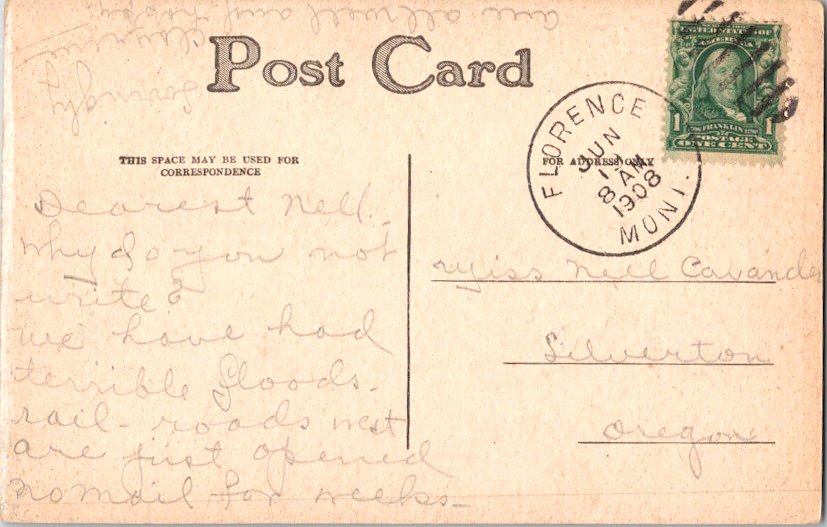 Post Card
THIS SPACE MAY BE USED FOR
CORRESPONDENCE
FOR ADDRESS ONLY
FLORENCE
JUN
8 AM
1908
MONT.
UNITED STATES OF
AMERICA
FRANKLIN
1 POSTAGE 1
ONE CENT
Dearest Nell.
why do you not
write?
we have had
terrible floods.
rail-roads west
are just opened
no mail for weeks
are all well and happy.
Lovingly
Miss Nell Cavander
Silverton
Oregon